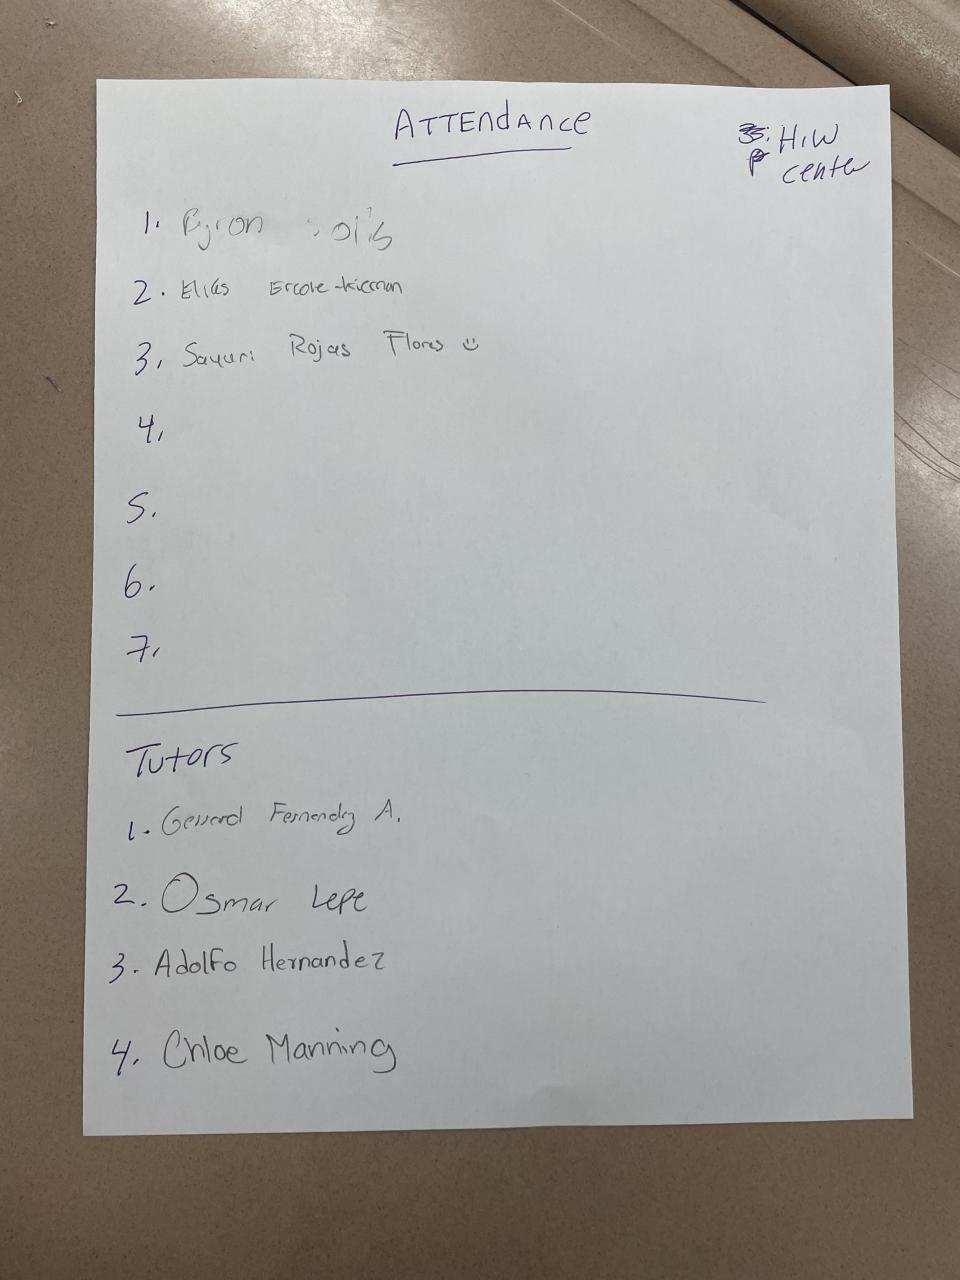 ATTEndAnce
H.W
center
1. Byron Solis
2. Eliás Ercole-kiernan
3. Sayuri Rojas Flores
4.
5.
6.
7.
Tutors
1. Gerrard Fernandez A.
2. Osmar Lepe
3. Adolfo Hernandez
4. Chloe Manning